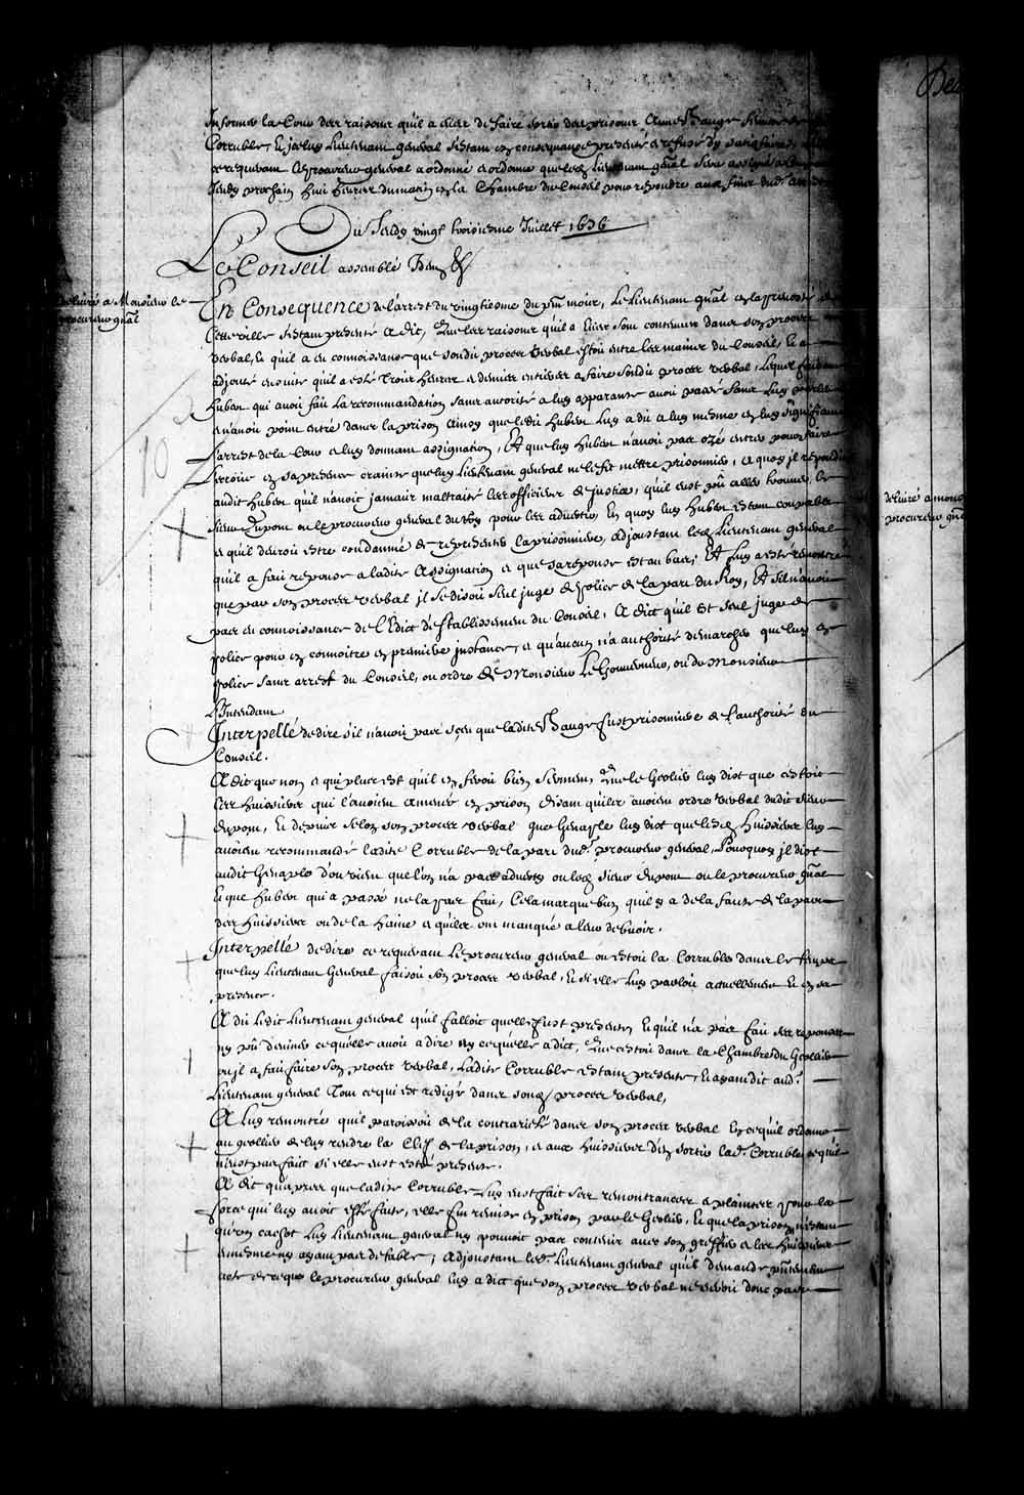 Informer la Cour des raisons qu'il a eues de faire sortir des prisons Anne Bauge femme de
Corruble, Et ledit Lieutenant general s'estant en consequence presenté et refusé d'y satisfaire,
ce requerant le procureur general a ordonné et ordonne que led. Lieutenant gnãl sera assigné a
Jeudy prochain huit heures du matin en la Chambre du Conseil pour respondre aux fins dud.
Du Jeudy vingt troisiesme Juillet 1676
Le Conseil assemblé
deliuré a Monsieur le
procureur gnãl
En Consequence de l'arrest du vingtiesme du pñt mois, Le Lieutenant gnãl en la preuosté de
Cette ville s'estant presenté A dit, Que les raisons qu'il a Eües sont contenues dans son procez
verbal, Et qu'il a eu connoissance que sondit procez verbal estoit entre les mains du Conseil, Et a
adjousté ensuite qu'il a esté Trois heures et demies entieres a faire sondit procez verbal, lequel
huben qui auoit fait la recommandation sans autorité a luy apparante auoit passé sans luy parler
et n'auoit point entré dans la prison ainsy que ledit huben luy a dit a luy mesme en luy signifiant
l'arrest de la Cour et luy donnant assignation, Et que luy huben n'auoit pas ozé entrer pour faire
l'ecroüe en sa presence crainte que luy Lieutenant general ne le fit mettre prisonnier, a quoy jl repondit
audit huben qu'il n'auoit jamais maltraité les officiers de justice, qu'il eust pû aller trouuer le
sieur Dupont ou le procureur general du Roy pour les aduertir En quoy luy huben estoit coupable
et qu'il deuroit estre condamné de representer la prisonniere, adjoustant led. Lieutenant general
qu'il a fait reponse a ladite Assignation et que sa reponse est au bas; Et luy a esté remontré
que par son procez verbal jl se disoit seul juge de police de la part du Roy, Et s'il n'auoit
pas eu connoissance de l'Edict d'establissement du Conseil, A dict qu'il est seul juge de
police pour en connoitre en premiere jnstance, et qu'aucun n'a authorité de marcher que luy en
police sans arrest du Conseil, ou ordre de Monsieur Le Gouuerneur, ou de Monsieur
L'Intendant
Interpellé de dire s'il n'auoit pas sçeu que ladite Bauge fust prisonniere de l'authorité du
Conseil.
A dit que non et qui plus est qu'il en seroit bien Que le Geolier luy dist que c'estoit
les huissiers qui l'auoient amenée en prison disant qu'ils en auoient ordre verbal dudit sieur
Dupont, Et depuis selon son procez verbal que Genaple luy dist que lesd. huissiers luy
auoient recommandé ladite Corruble de la part dud. procureur general, Pourquoy jl dist
audit Genaple d'ou vient que l'on n'a pas aduerty ou led. sieur Dupont ou le procureur gnãl
Et que huben qui a passé ne l'a pas fait, Cela marque bien qu'il y a de la faute de la part
des huissiers ou de la haine et qu'ils ont manqué a leur debuoir.
Interpellé de dire ce requerant le procureur general ou estoit la Corruble dans le temps
que luy Lieutenant General faisoit son procez verbal, Et si elle luy parloit actuellement Et en sa
presence.
A dit Ledit Lieutenant general qu'il falloit qu'elle fust presente Et qu'il n'a pas fait ses reponses
ny pû deuiner ce qu'elle auoit a dire ny ce qu'elle a dict, Que c'estoit dans la Chambre du Geolier
ou jl a fait faire son procez verbal, ladite Corruble estant presente, Et ayant dit aud.
Lieutenant general Tout ce qui est redigé dans son procez verbal,
A Luy remontré qu'il paroissoit de la contrarieté dans son procez verbal En ce qu'il ordonne
au geollier de luy rendre la Clef de la prison, et aux huissiers d'en sortir lad. Corruble ce qu'il
n'eust pas fait si elle eust esté presente.
A dit qu'apres que ladite Corruble luy eust fait ses remontrances et plaintes pour la
force qui luy auoit esté faite, elle fut remise en prison par le Geolier, Et que la prison n'estant
qu'un cachot luy Lieutenant general ny pouuoit pas contenir auec son greffier et les huissiers
et mesme ny ayant pas de table, Adjoustant led. Lieutenant general qu'il demande pñtement
acte de ce que le procureur general luy a dict que son procez verbal ne deuoit donc pas
deliuré a mons
procureur gnã